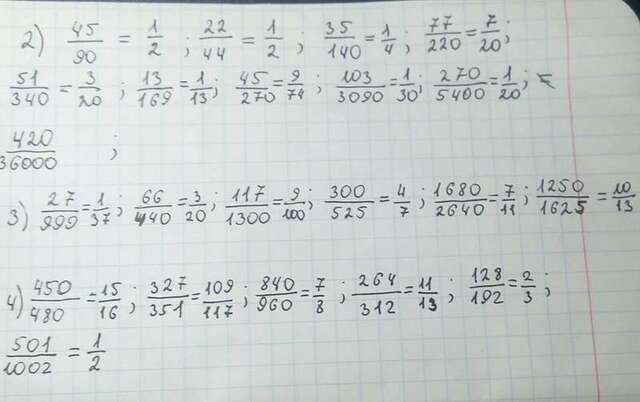 2) 45/90 = 1/2 ; 22/44 = 1/2 ; 35/140 = 1/4 ; 77/220 = 7/20 ;
51/340 = 3/20 ; 13/169 = 1/13 ; 45/270 = 9/74 ; 103/3090 = 1/30 ; 270/5400 = 1/20 ;
420/36000 ;
3) 27/999 = 1/37 ; 66/440 = 3/20 ; 117/1300 = 9/100 ; 300/525 = 4/7 ; 1680/2640 = 7/11 ; 1250/1625 = 10/13
4) 450/480 = 15/16 ; 327/351 = 109/117 ; 840/960 = 7/8 ; 264/312 = 11/13 ; 128/192 = 2/3 ;
501/1002 = 1/2